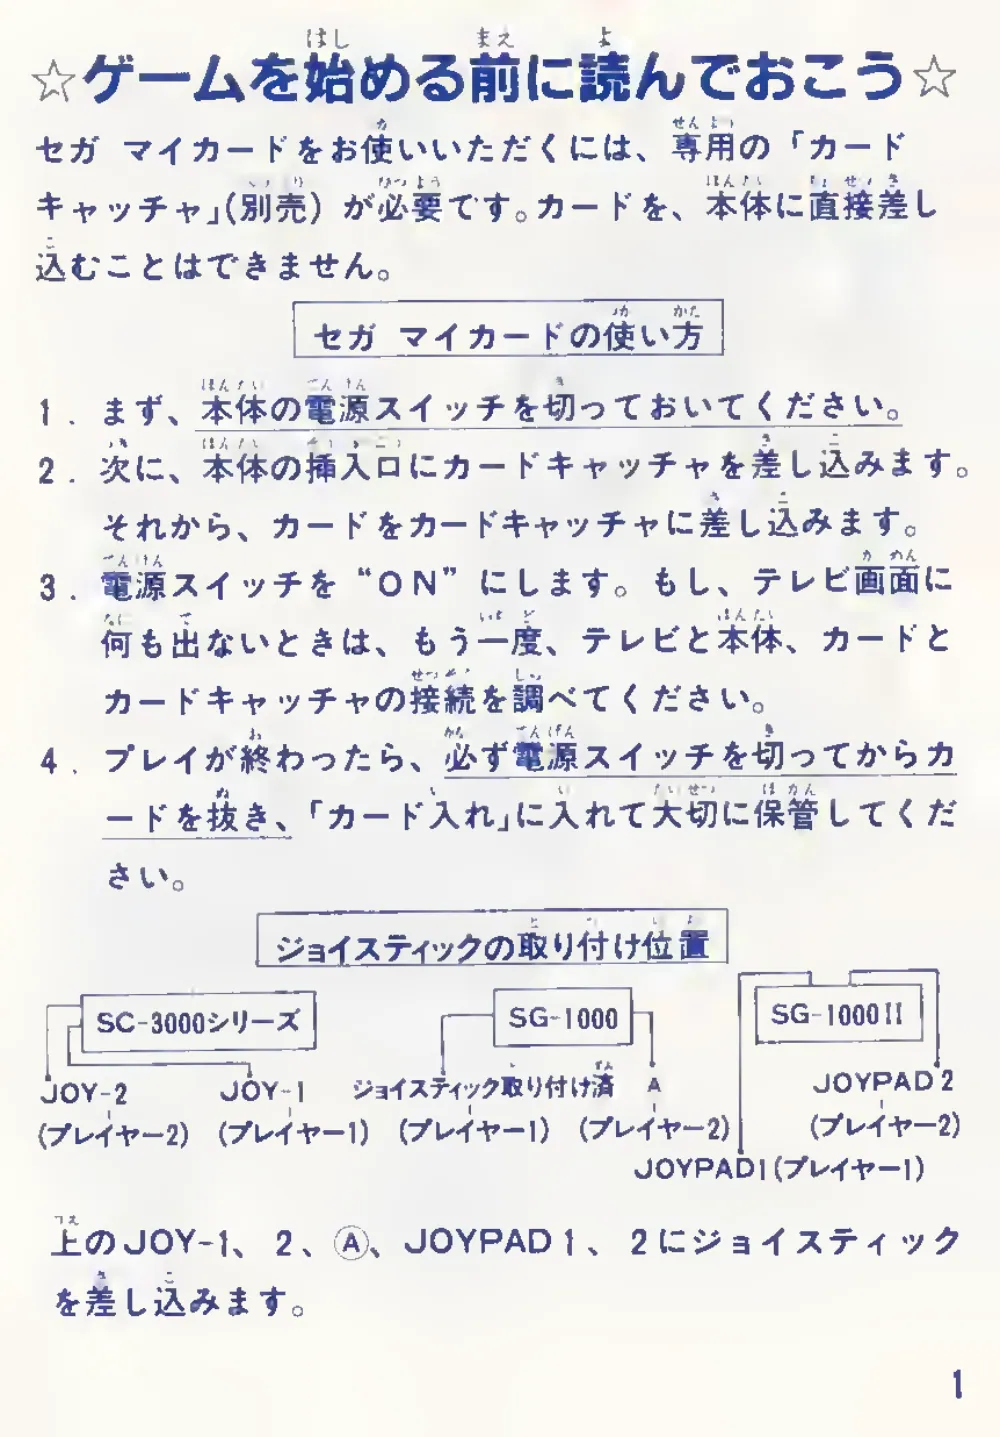 ☆ゲームを始める前に読んでおこう☆
セガ マイカードをお使いいただくには、専用の「カード
キャッチャ」(別売)が必要です。カードを、本体に直接差し
込むことはできません。
セガ マイカードの使い方
1. まず、本体の電源スイッチを切っておいてください。
2. 次に、本体の挿入口にカードキャッチャを差し込みます。
それから、カードをカードキャッチャに差し込みます。
3. 電源スイッチを“ON”にします。もし、テレビ画面に
何も出ないときは、もう一度、テレビと本体、カードと
カードキャッチャの接続を調べてください。
4. プレイが終わったら、必ず電源スイッチを切ってからカ
ードを抜き、「カード入れ」に入れて大切に保管してくだ
さい。
ジョイスティックの取り付け位置
SC-3000シリーズ
SG-1000
SG-1000II
JOY-2
JOY-1
ジョイスティック取り付け済
A
JOYPAD2
(プレイヤー2)
(プレイヤー1)
(プレイヤー1)
(プレイヤー2)
(プレイヤー2)
JOYPAD1(プレイヤー1)
上のJOY-1、2、Ⓐ、JOYPAD1、2にジョイスティック
を差し込みます。
1